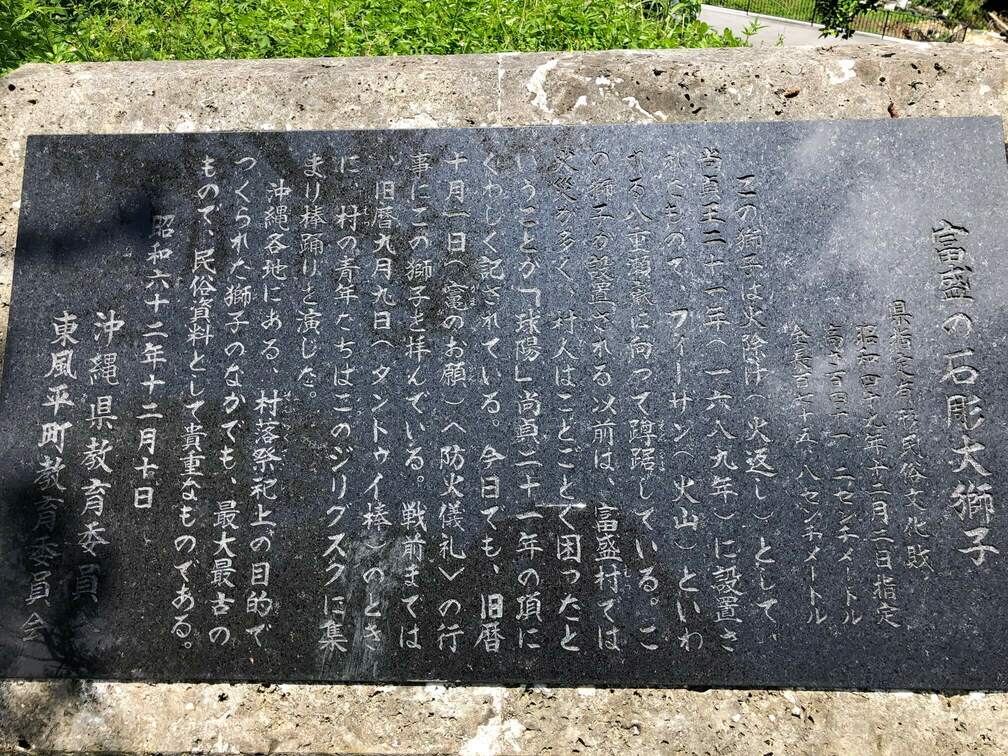 富盛の石彫大獅子
県指定有形民俗文化財
昭和四十九年十二月二日指定
高さ百四十一・二センチメートル
全長百七十五・八センチメートル
この獅子は火除け(火返し)として、
尚貞王二十一年(一六八九年)に設置さ
れたもので、フィーザン(火山)といわ
れる八重瀬嶽に向って蹲踞している。こ
の獅子が設置される以前は、富盛村では
火災が多く、村人はことごとく困ったと
いうことが「球陽」尚貞二十一年の項に
くわしく記されている。今日でも、旧暦
十月一日(竈のお願)〈防火儀礼〉の行
事にこの獅子を拝んでいる。戦前までは
、旧暦九月九日(タントゥイ棒)のとき
に、村の青年たちはこのジリグスクに集
まり棒踊りを演じた。
沖縄各地にある、村落祭祀上の目的で
つくられた獅子のなかでも、最大最古の
もので、民俗資料として貴重なものである。
昭和六十二年十二月十日
沖縄県教育委員会
東風平町教育委員会